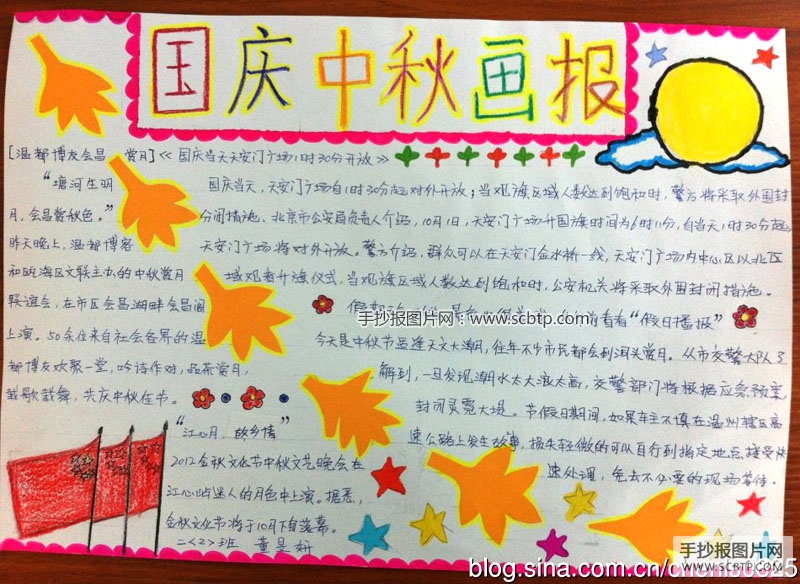 国庆中秋画报
[温都博友会昌 赏月]
"塘河生明
月,会昌赏秋色。"
昨天晚上,温都博客
和瓯海区文联主办的中秋赏月
联谊会,在市区会昌湖畔会昌阁
上演。50余位来自社会各界的温
都博友欢聚一堂,吟诗作对,品茶赏月,
载歌载舞,共庆中秋佳节。
《国庆当天天安门广场1时30分开放》
国庆当天,天安门广场自1时30分起对外开放;当观旗区域人数达到饱和时,警方将采取外围封
闭措施。北京市公安局负责人介绍,10月1日,天安门广场升国旗时间为6时11分,自当天1时30分起
天安门广场将对外开放。警方介绍,群众可以在天安门金水桥一线,天安门广场内中心区以北区
域观看升旗仪式,当观旗区域人数达到饱和时,公安机关将采取外围封闭措施。
看看"假日播报"
今天是中秋节适逢天文大潮,往年不少市民都会到洞头赏月。从市交警大队了
解到,一旦发现潮水太大浪太高,交警部门将根据应急预案
封闭灵霓大堤。节假日期间,如果车主不慎在温州辖区高
速公路上发生故事,损失轻微的可以自行到指定地点接受快
速处理,免去不必要的现场等待.
"江心月,故乡情"
2012金秋文化节中秋文艺晚会在
江心屿迷人的月色中上演。据悉,
金秋文化节将于10月下旬落幕。
二<2>班 董
手抄报图片网 www.scbtp.com
手抄报图片网
WWW.SCBTP.COM